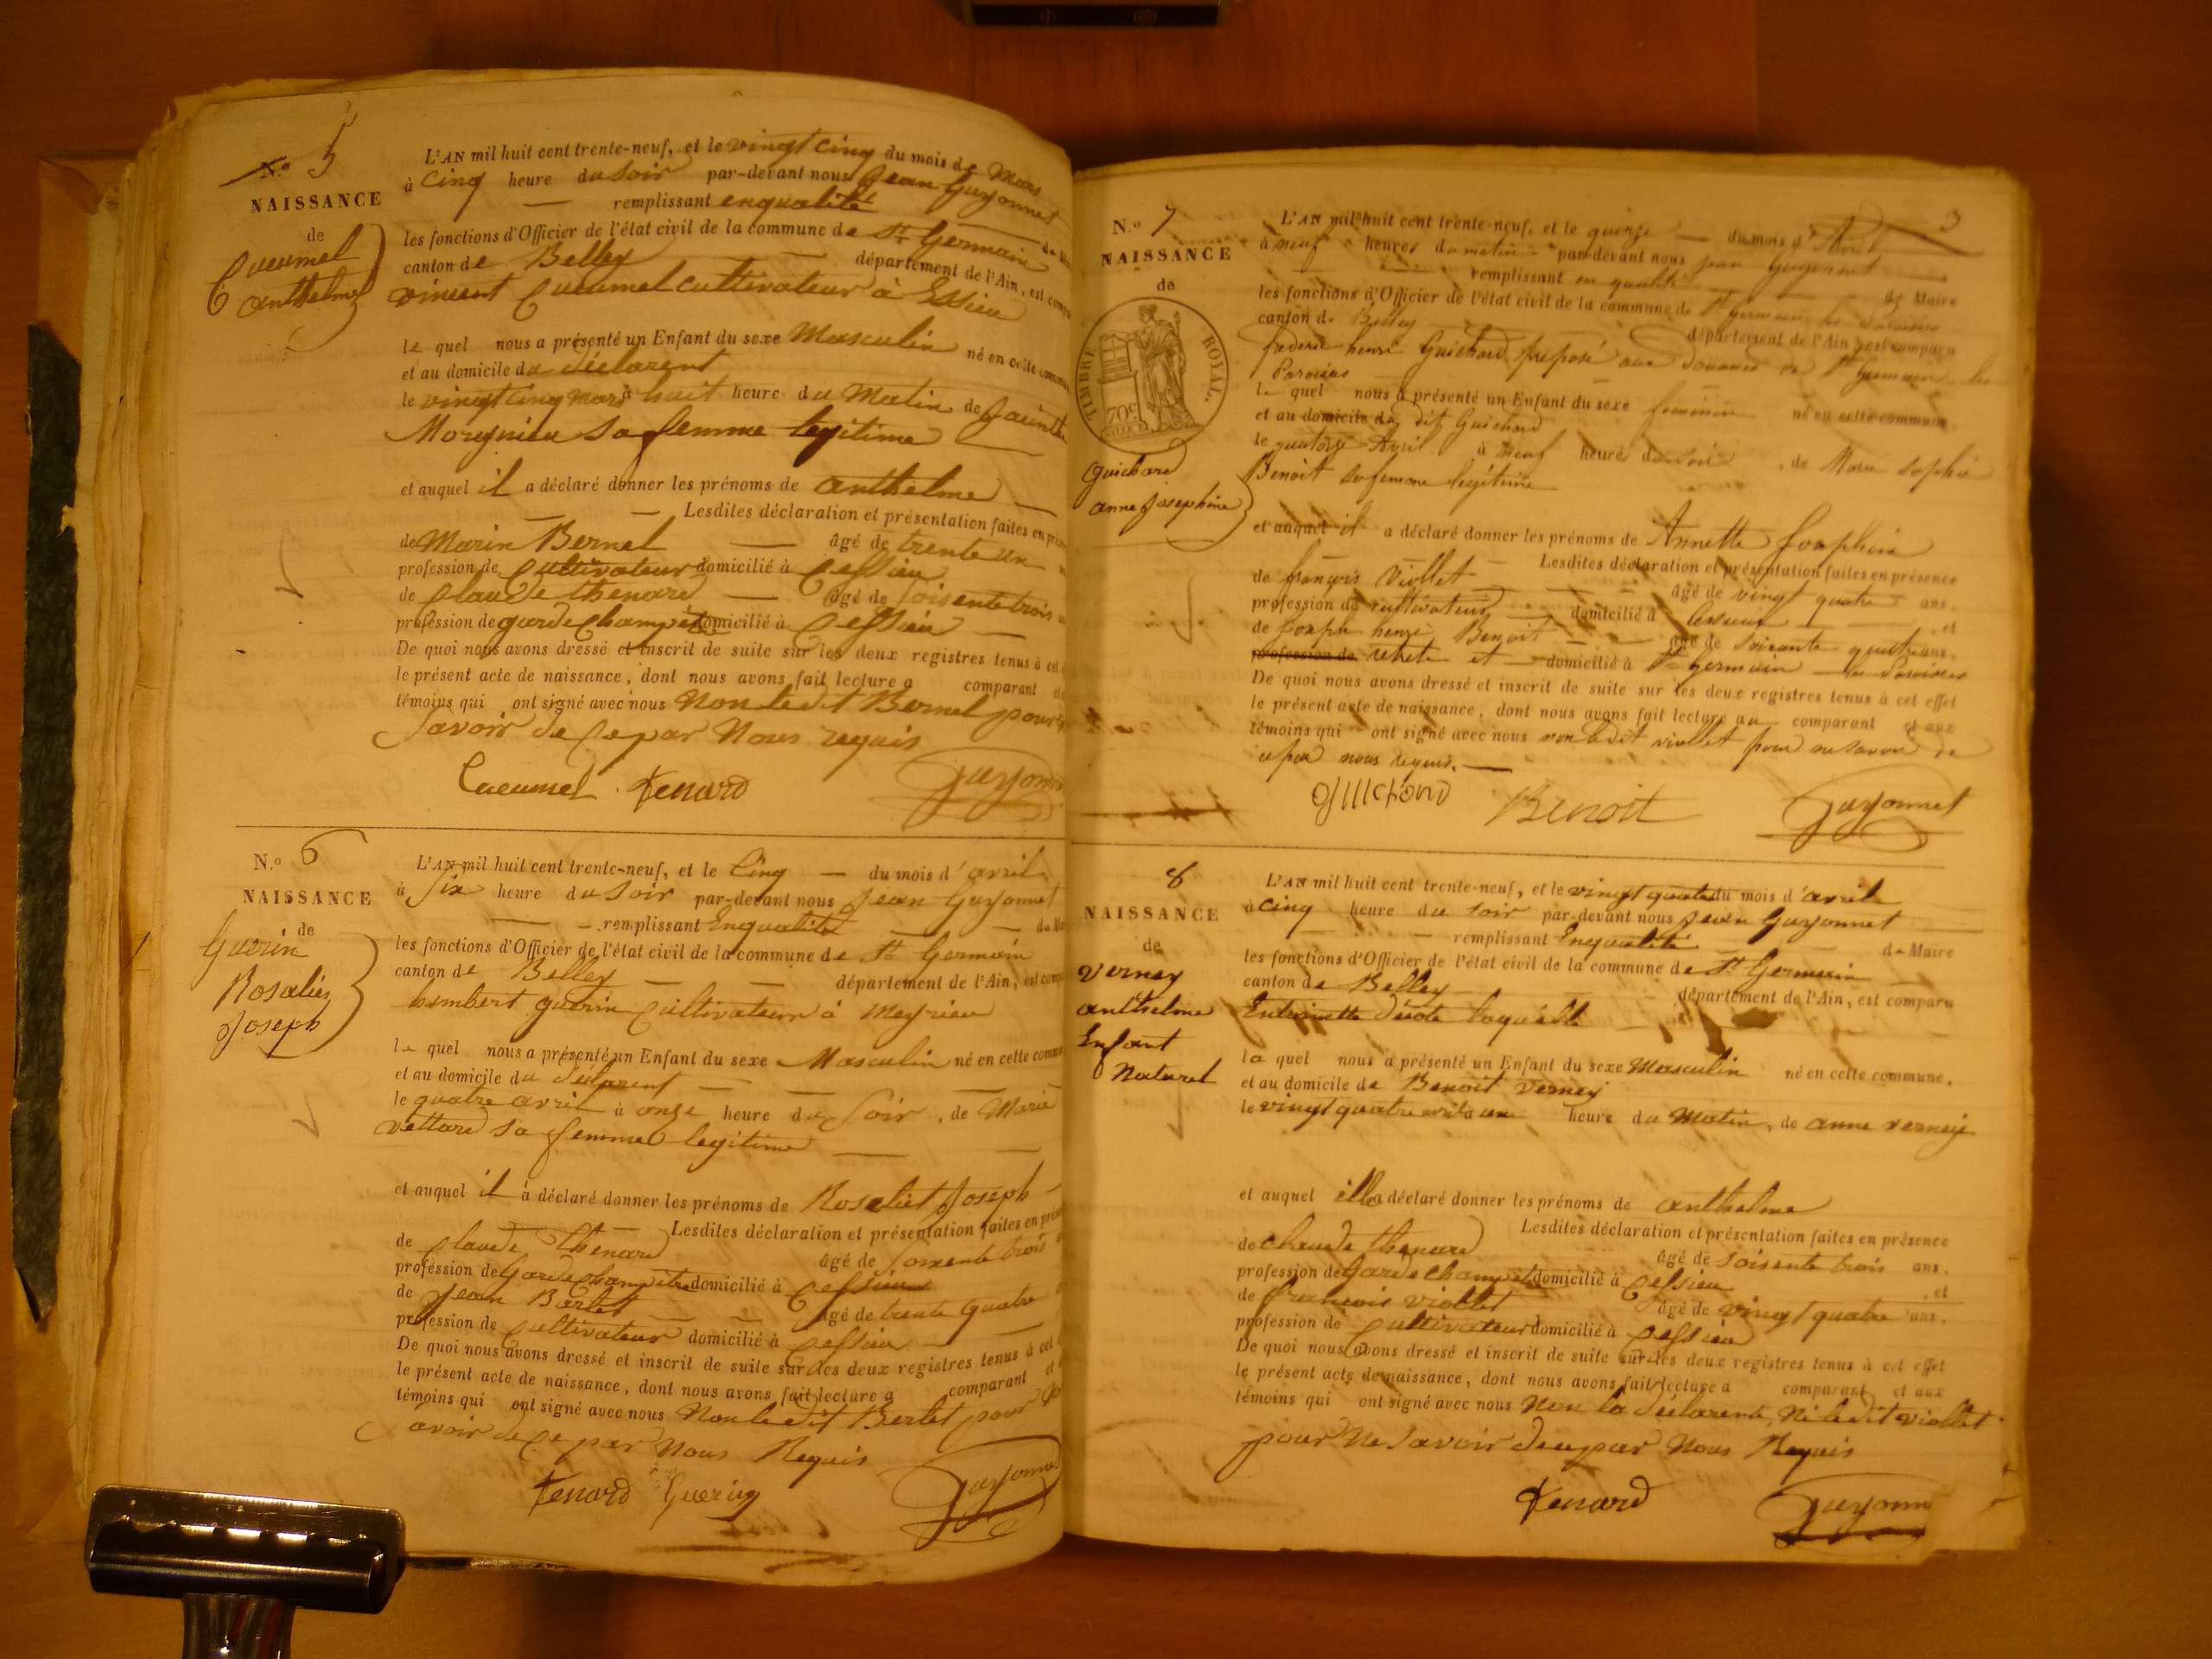 N.o 5
NAISSANCE
de
Cucumel
anthelme
L'AN mil huit cent trente-neuf, et le vingt cinq du mois de Mars
à Cinq heure du Soir par-devant nous Jean Guyonnet
remplissant enqualité
les fonctions d'Officier de l'état civil de la commune de St Germain
canton de Belley département de l'Ain, est
vincent Cucumel cultivateur à Essieu
le quel nous a présenté un Enfant du sexe Masculin né en cette
et au domicile du déclarent
le vingt Cinq mars à huit heure du Matin de
sa femme legitime
et auquel il a déclaré donner les prénoms de anthelme
Lesdites déclaration et présentation faites en
de Marin Bernel âgé de trente un
profession de Cultivateur domicilié à Cessieu
de Claude thenard âgé de soisente trois
profession de garde Champêtre domicilié à Cessieu
De quoi nous avons dressé et inscrit de suite sur les deux registres tenus à cet
le présent acte de naissance, dont nous avons fait lecture a comparant
témoins qui ont signé avec nous Non ledit Bernel pour
Savoir de Ce par Nous requis
Cucumel Tenard Guyonnet
N.o 6
NAISSANCE
de
Guerin
Rosalier
Joseph
L'AN mil huit cent trente-neuf, et le Cinq du mois d'avril
à Six heure du Soir par-devant nous Jean Guyonnet
remplissant Enqualité
les fonctions d'Officier de l'état civil de la commune de St Germain
canton de Belley département de l'Ain, est
humbert guerin Cultivateur à Meyrieu
le quel nous a présenté un Enfant du sexe Masculin né en cette
et au domicile du déclarent
le quatre avril à onze heure du Soir, de Marie
vettard sa femme legitime
et auquel il a déclaré donner les prénoms de Rosaliet Joseph
Lesdites déclaration et présentation faites en
de Claude Thenard âgé de soixente trois
profession de Garde Champêtre domicilié à Cessieu
de Jean Bertet âgé de trente quatre
profession de Cultivateur domicilié à Cessieu
De quoi nous avons dressé et inscrit de suite sur les deux registres tenus à cet
le présent acte de naissance, dont nous avons fait lecture a comparant et
témoins qui ont signé avec nous Non ledit Bertet pour
avoir de Ce par Nous Requis
Tenard Guering Guyonnet
3
N.o 7
NAISSANCE
de
TIMBRE ROYAL
70c
Guichard
anne Josephine
L'AN mil huit cent trente-neuf, et le quinze du mois d'Avril
à neuf heures du matin par-devant nous jean Guyonnet
remplissant en qualité de Maire
les fonctions d'Officier de l'état civil de la commune de St germain les Paroisses
canton de Belley département de l'Ain, est comparu
frederic henri Guichard préposé aux Douanes de St Germain les
Paroisses
le quel nous a présenté un Enfant du sexe feminin né en cette commune,
et au domicile du dit Guichard
le quatorze Avril à neuf heures du soir, de Marie Sophie
Benoit sa femme légitime
et auquel il a déclaré donner les prénoms de Annette Josephine
Lesdites déclaration et présentation faites en présence
de françois Viollet âgé de vingt quatre ans,
profession de cultivateur domicilié à Cessieux, et
de Joseph henri Benoit âgé de soixante quatre ans,
profession de retrete et domicilié à St Germain les Paroisses
De quoi nous avons dressé et inscrit de suite sur les deux registres tenus à cet effet
le présent acte de naissance, dont nous avons fait lecture au comparant et aux
témoins qui ont signé avec nous non ledit viollet pour ne savoir de
ce par nous requis.
GUICHARD Benoit Guyonnet
8
NAISSANCE
de
Verney
anthelme
Enfant
Naturel
L'AN mil huit cent trente-neuf, et le vingt quatre du mois d'avril
à Cinq heure du soir par-devant nous Jean Guyonnet
remplissant Enqualité de Maire
les fonctions d'Officier de l'état civil de la commune de St Germain
canton de Belley département de l'Ain, est comparu
laquelle
la quel nous a présenté un Enfant du sexe Masculin né en cette commune,
et au domicile de Benoit verney
le vingt quatre avril à une heure du Matin, de anne verney
et auquel elle a déclaré donner les prénoms de anthelme
Lesdites déclaration et présentation faites en présence
de Claude thenard âgé de soisente trois ans,
profession de Garde Champêt domicilié à Cessieu, et
de francois viollet âgé de vingt quatre ans,
profession de Cultivateur domicilié à Cessieu
De quoi nous avons dressé et inscrit de suite sur les deux registres tenus à cet effet
le présent acte de naissance, dont nous avons fait lecture a comparant et aux
témoins qui ont signé avec nous Non la déclarente, Ni ledit viollet
pour Ne Savoir de ce par Nous Requis
Tenard Guyonnet